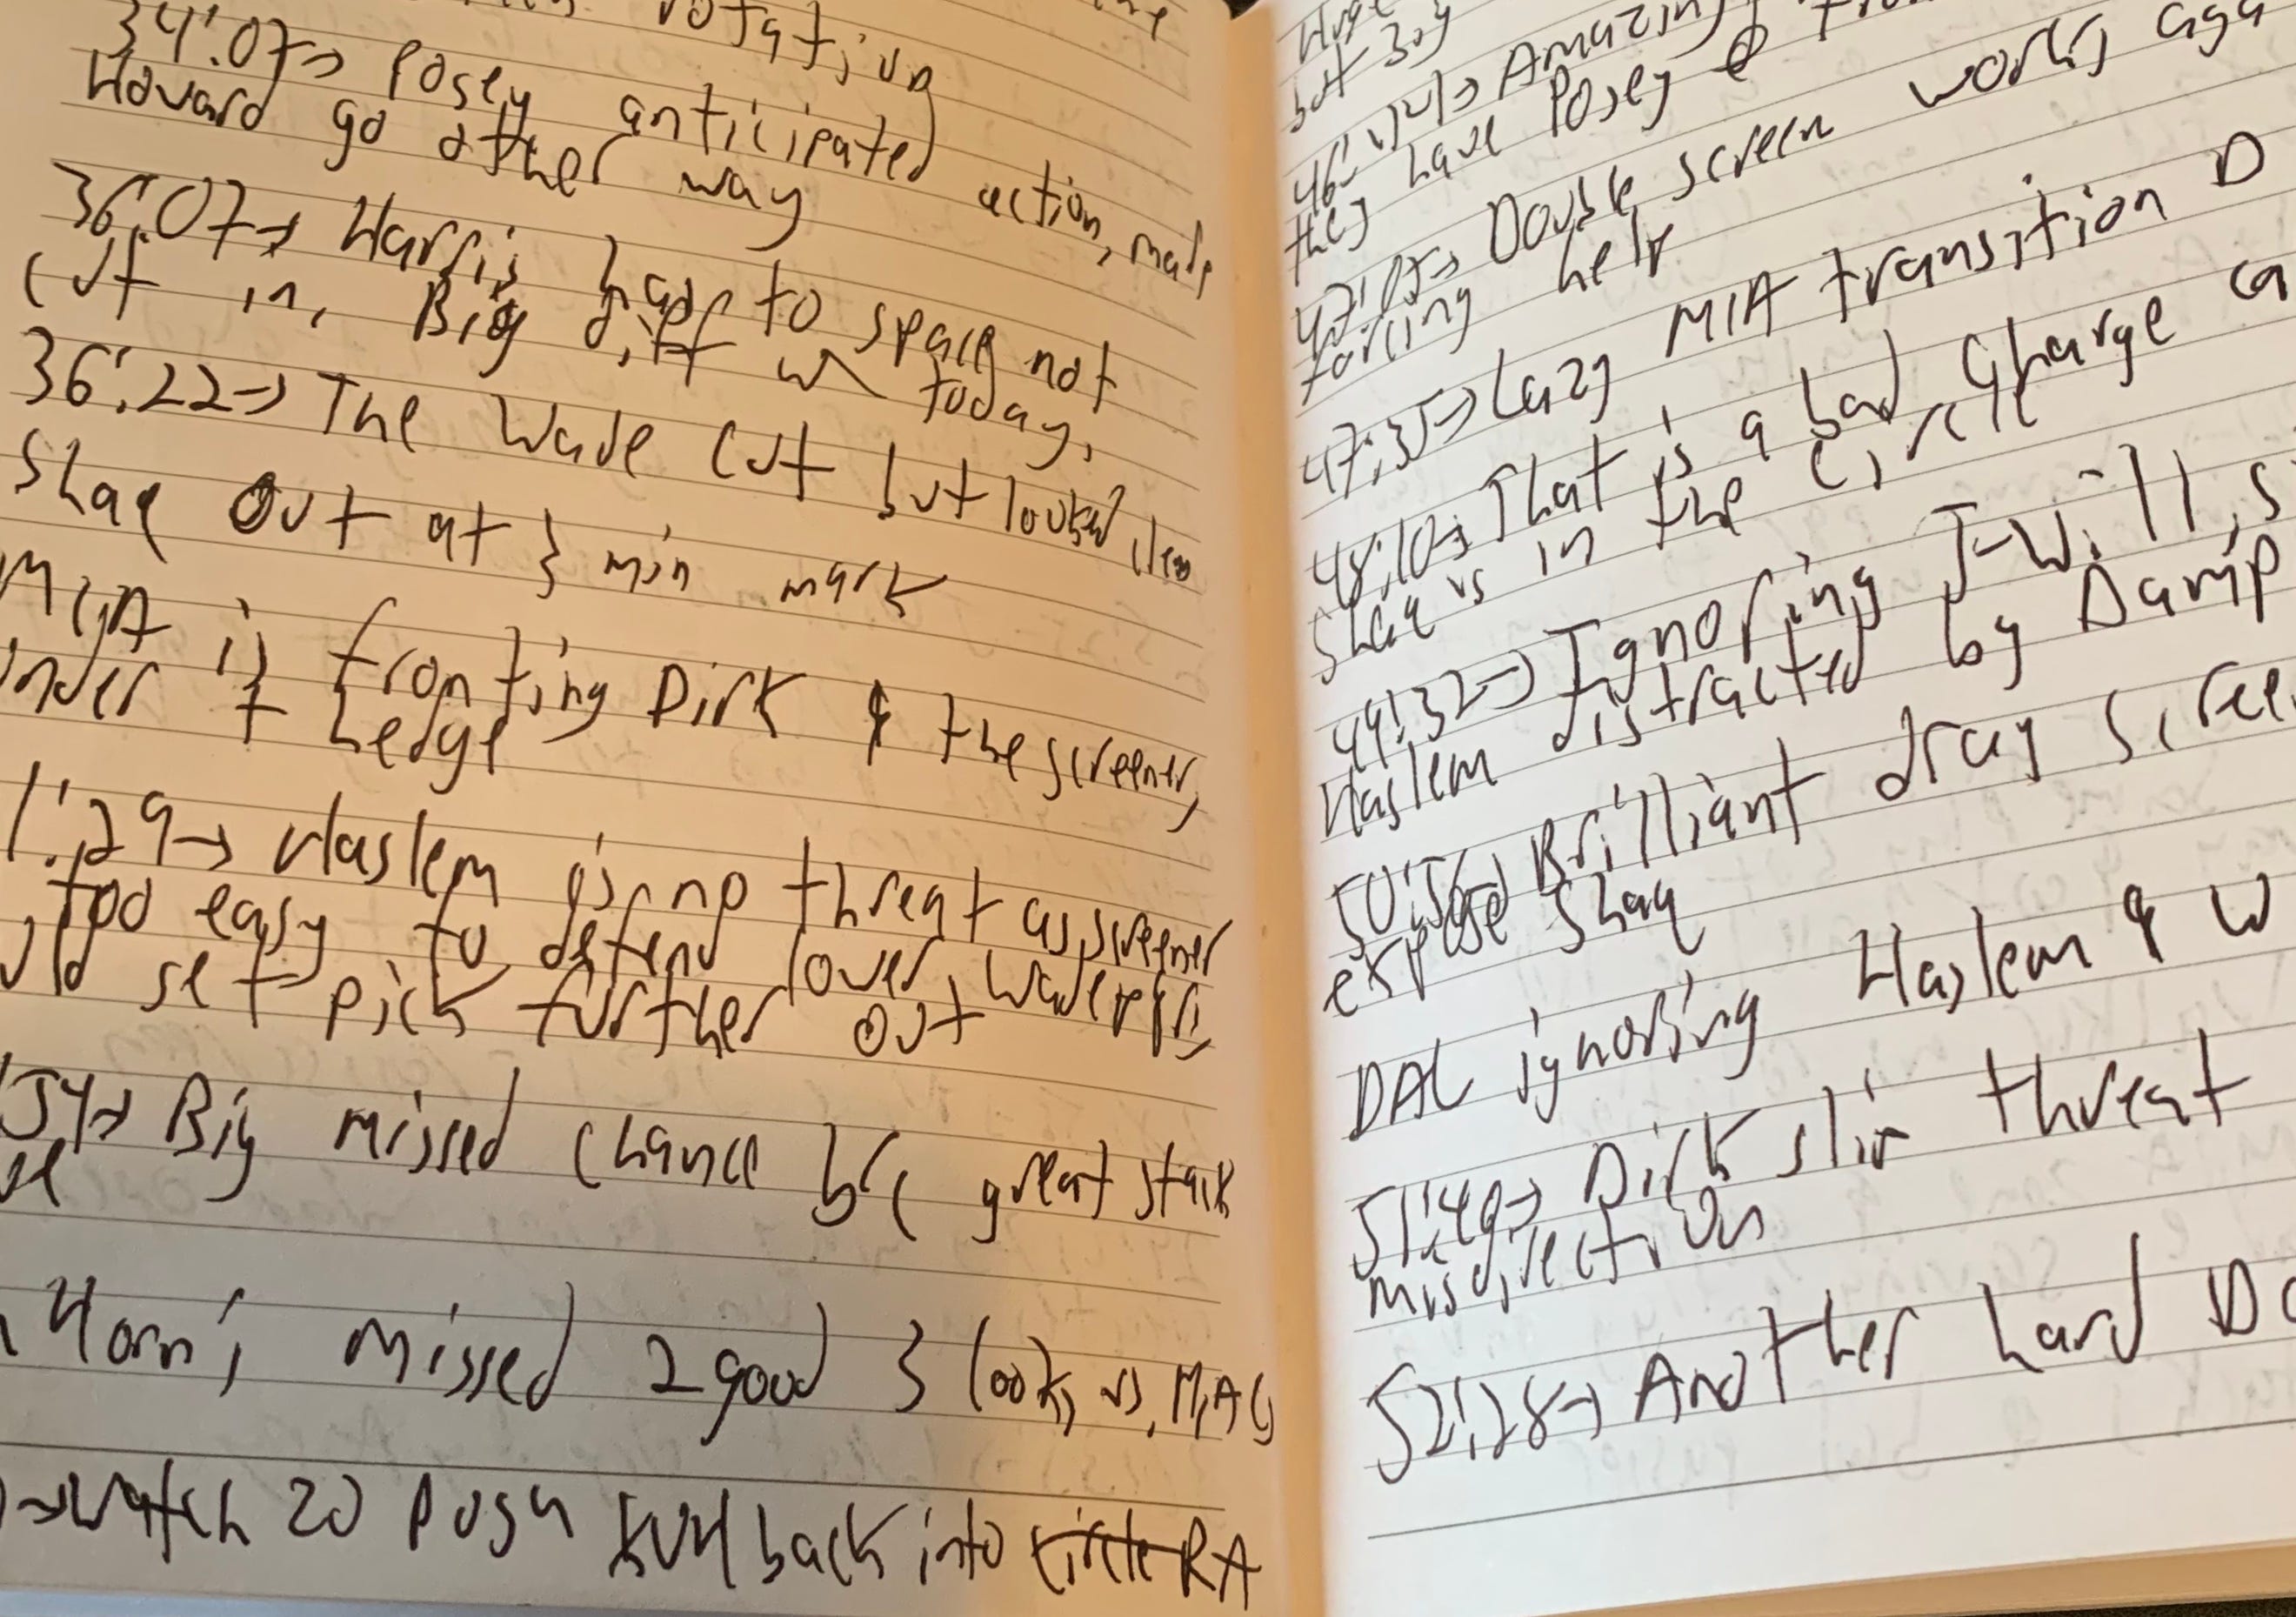 rotation
34:07→ Posey anticipated action, made
Howard go other way
36:07→ Harris had to space not
cut in, Big diff w today.
36:22→ The Wade cut but looked
Shaq out at 3 min mark
MIA is fronting Dirk & the screener,
under + hedge
1:29→ Haslem is no threat as screener
too easy to defend over Wade
set pick further out
54→ Big missed chance b/c great stack
Horn; missed 2 good 3 looks vs. MIA
→Watch 20 push back into circle RA
but
46: → Amazing
they have Posey
47:07→ Double screen works aga
forcing help
47:35→ Lazy MIA transition D
48:10→ That is a bad charge ca
Shaq is in the circle
49:32→ Ignoring J-Will, s
Haslem distracted by Damp
50:56→ Brilliant drag scree
expose Shaq
DAL ignoring Haslem & W
51:49→ Dirk slip threat
misdirection
52:28→ Another hard D